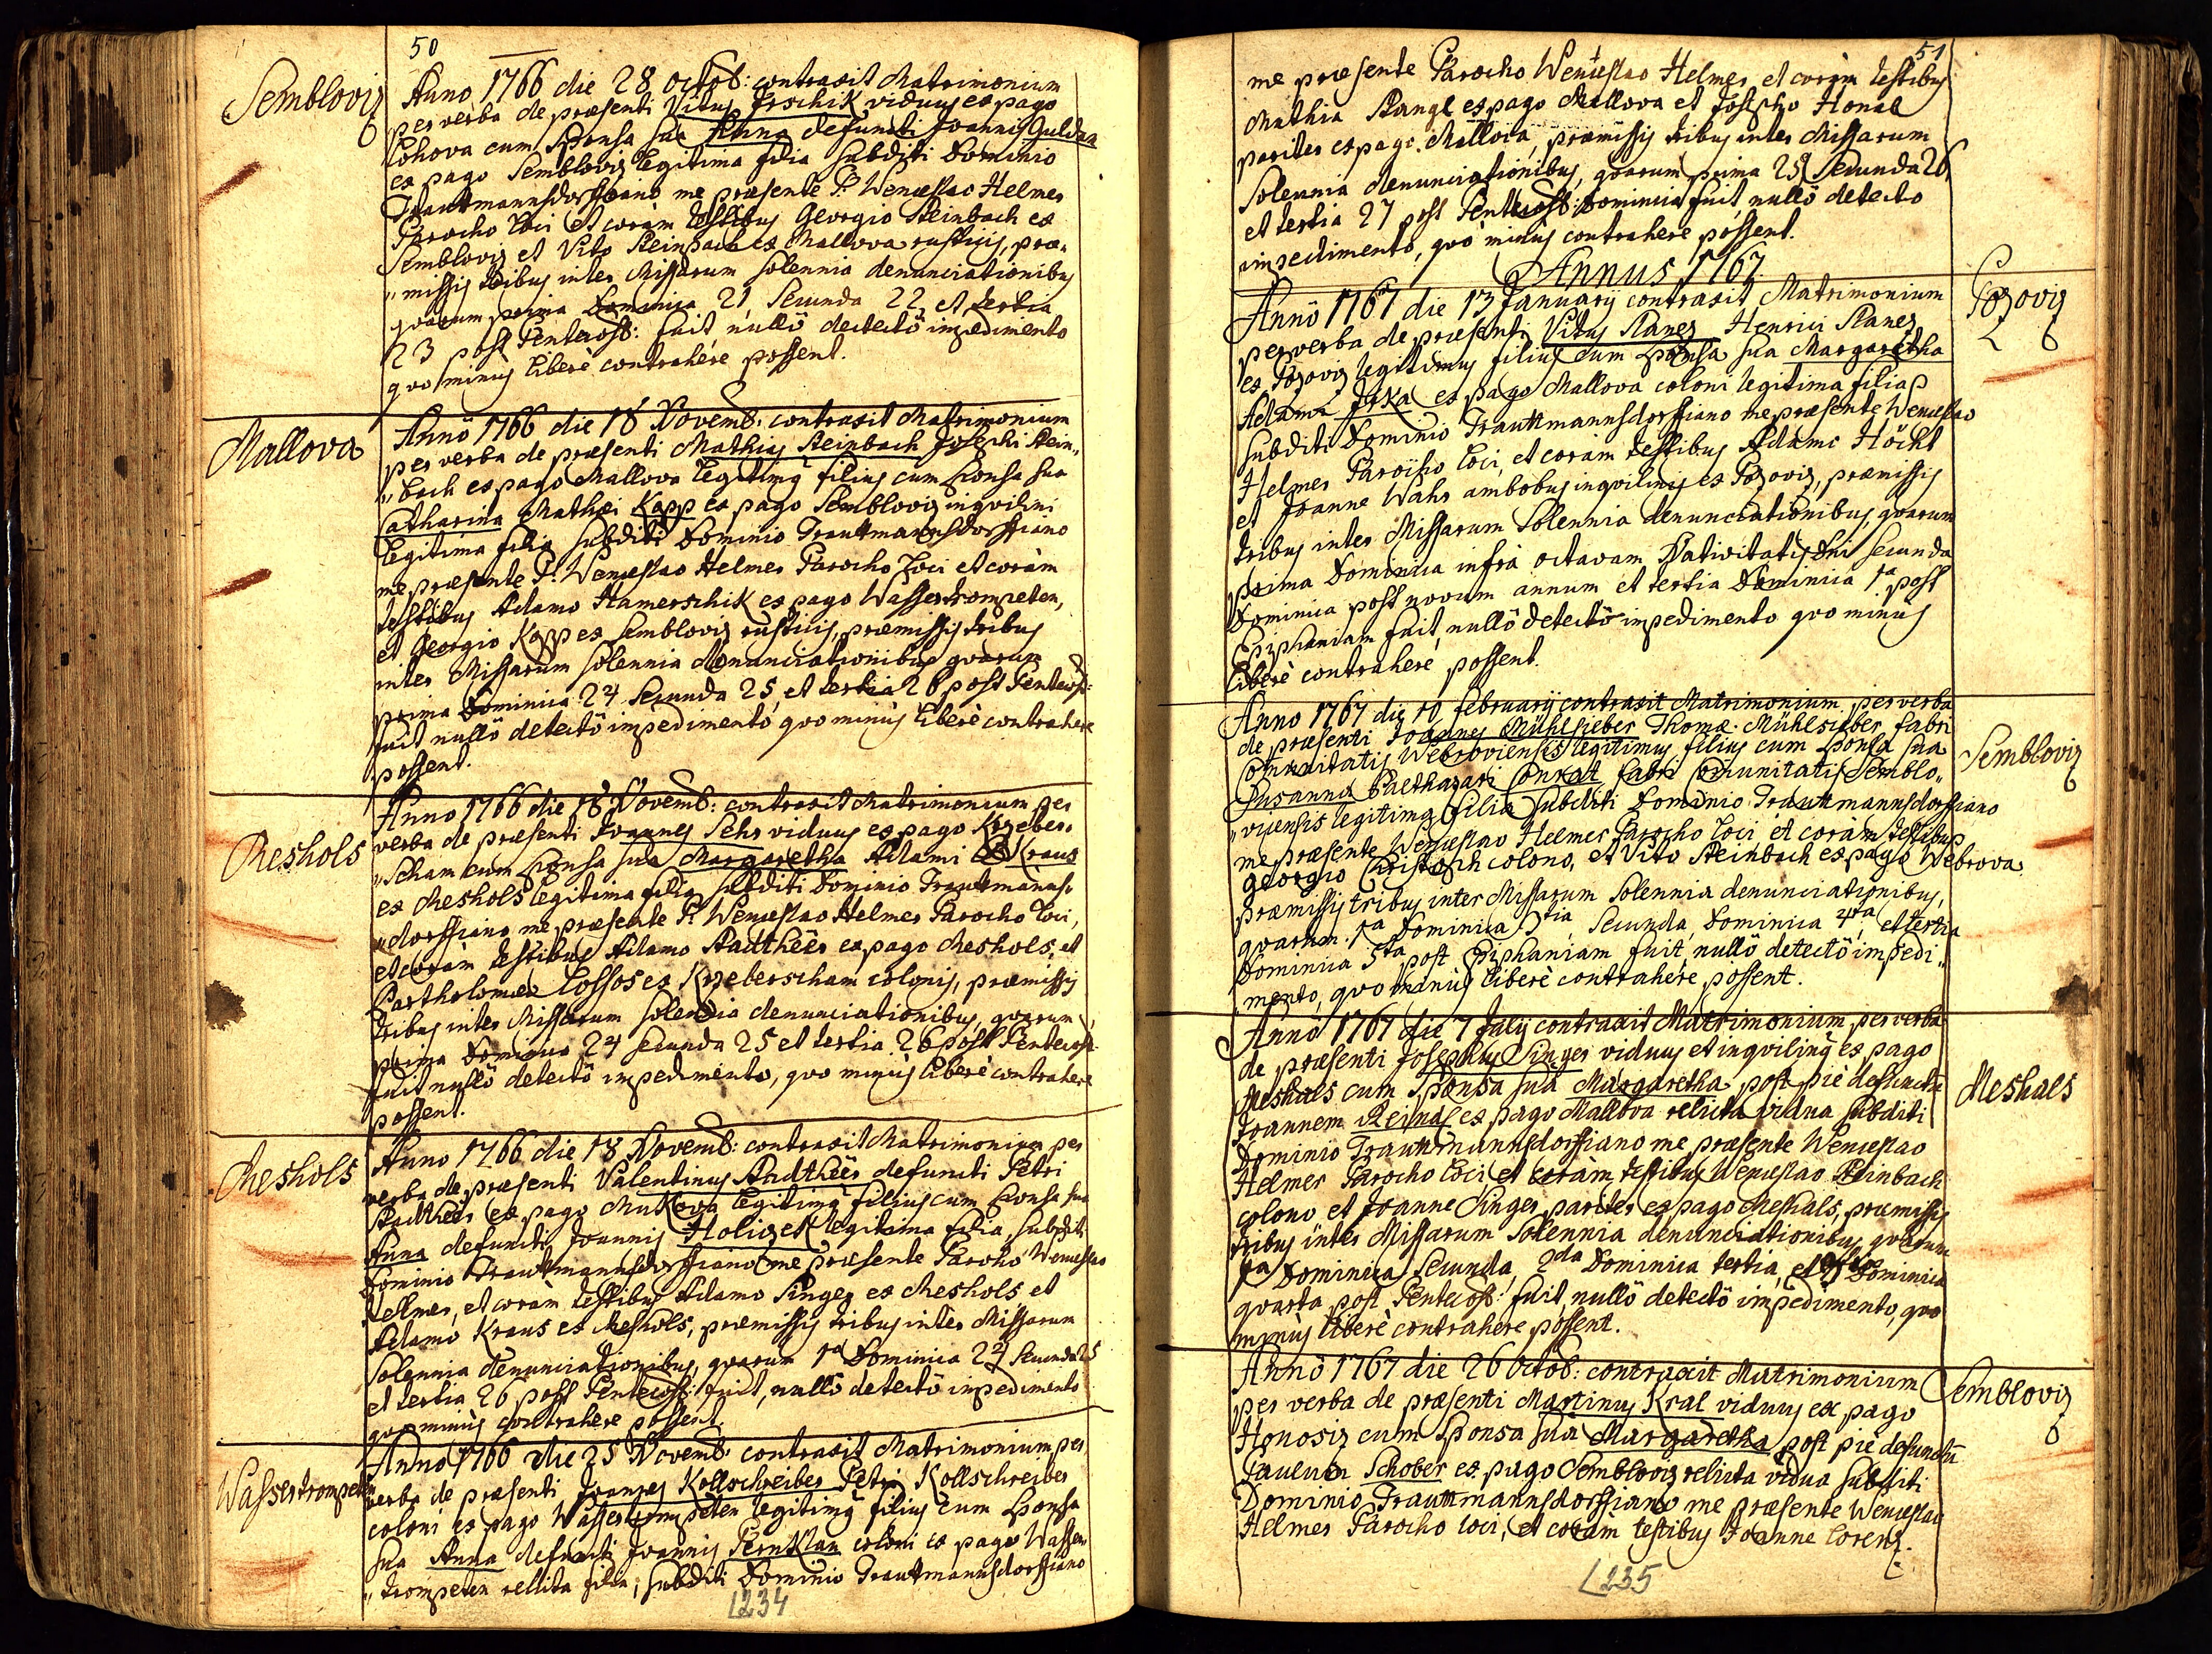 50
Sembloviz
Anno 1766 die 28 octob: contraxit Matrimonium
per verba de præsenti Vitus Irschik viduus ex pago
Lohova cum Sponsa sua Anna defuncti Joannis Guldan
ex pago Sembloviz legitima filia subditi Dominio
Trauttmannsdorffiano me præsente P. Wenceslao Helmer
Parocho loci et coràm testibus Georgio Steinbach ex
Sembloviz et Vito Steinbach ex Mallova rusticis, præ„
„missis tribus inter Missarum solennia denunciationibus
quarum prima Dominica 21, Secunda 22, et tertia
23 post Pentecost: fuit nullô detectô impedimento
quo minùs liberè contrahere possent.
Mallova
Annô 1766 die 18 Novemb: contraxit Matrimonium
per verba de præsenti Mathias Steinbach Josephi Stein„
„bach ex pago Mallova legitimq filius cum Sponsa sua
Catharina Mathæi Kapp ex pago Sembloviz inqvilini
legitima filia subditi Dominio Trauttmannsdorffiano
me præsente P. Wenceslao Helmer Parocho loci et coràm
testibus Adamo Hamerschik ex pago Wassertrompeten,
et Georgio Kapp ex Sembloviz rusticis, præmissis tribus
inter Missarum solennia denunciationibus quarum
prima Dominica 24 Secunda 25, et tertia 26 post Pentecost:
fuit nullô detectô impedimentô, quo minùs liberè contrahere
possent.
Meshols
Anno 1766 die 18 Novemb: contraxit Matrimonium per
verba de præsenti Joannes Sehr viduus ex pago Krzeber„
„scham cum Sponsa sua Margaretha Adami Kraus
ex Meshols legitima filia subditi Dominio Trauttmanns„
„dorffiano me præsente P. Wenceslao Helmer Parocho loci,
et coràm testibus Adamo Stadtheer ex pago Meshols, et
Bartholomæo Cossos ex Krzeberscham colonis, præmissis
tribus inter Missarum solennia denunciationibus, quarum
prima Dominica 24 secunda 25 et tertia 26 post Pentecost
fuit nullô detectô impedimento, quo minùs liberè contrahere
possent.
Meshols
Anno 1766 die 18 Novemb: contraxit Matrimonium per
verba de præsenti Valentinus Stadtheer defuncti Petri
Stadtheer ex pago Mukova legitimq filius cum Sponsa sua
Anna defuncti Joannis Holizek legitima filia, subditi
Dominio Trauttmannsdorffiano me præsente Parocho Wenceslao
Hellmer, et coràm testibus Adamo Singer ex Meshols et
Adamo Kraus ex Meshols, præmissis tribus inter Missarum
Solennia denunciationibus, quarum 1a Dominica 24 secunda 25
et tertia 26 post Pentecost: fuit, nullô detectô impedimento
quo minùs contrahere possent.
Wassertrompeten
Anno 1766 die 25 Novemb contraxit Matrimonium per
verba de præsenti Joannes Kollschreiber Petri Kollschreiber
coloni ex pago Wassertrompeten legitimq filius cum Sponsa
sua Anna defuncti Joannis Pernklau coloni ex pago Wasser„
„trompeten relicta filia, subditi Dominio Trauttmannsdorffiano
1234
51
me præsente Parocho Wenceslao Helmer, et coràm testibus
Mathia Stangl ex pago Mallova et Josepho Honal
pariter ex pago Mallova, præmissis tribus inter Missarum
Solennia denunciationibus, quarum prima 25 Secunda 26
et tertia 27 post Pentecost: Dominica fuit, nullô detecto
impedimentô, quô minùs contrahere possent.
Annus 1767
Pozoviz
Annô 1767 die 13 Januarij contraxit Matrimonium
per verba de præsenti Vitus Stanes Henrici Stanes
ex Pozoviz legitimus filius cum Sponsa sua Margaretha
Adami Jaka ex pago Mallova coloni legitima filia
subditi Dominio Trauttmannsdorffiano me præsente Wenceslao
Helmer Parocho loci, et coràm testibus Adamo Höchl
et Joanne Wahr ambobus inqvilinis ex Pozoviz, præmissis
tribus inter Missarum Solennia denunciationibus, quarum
prima Dominica infrà octavam Nativitatis Dni secunda
Dominica post novum annum et tertia Dominica 1a post
Epiphaniam fuit, nullô detectô impedimento quo minùs
liberè contrahere possent.
Sembloviz
Anno 1767 die 10 februarij contraxit Matrimonium per verba
de præsenti Joannes Mühlsieber Thomæ Mühlsieber fabri
Comunitatis Webroviensis legitimus filius cum Sponsa sua
Susanna Balthasari Conrat fabri Comunitatis Semblo„
„viensis legitima filia subditi Dominio Trauttmannsdorffiano
me præsente Wenceslao Helmer Parocho loci et coràm testibus
Georgio Christoph colono, et Vito Steinbach ex pago Webrova
præmissis tribus inter Missarum Solennia denunciationibus,
quarum 1a Dominica 3tia, Secunda Dominica 4ta, et tertia
Dominica 5ta post Epiphaniam fuit, nullô detectô impedi„
„mento, quo minùs liberè contrahere possent.
Meshals
Annô 1767 die 7 Julij contraxit Matrimonium per verba
de præsenti Josephus Singer viduus et inqvilinq ex pago
Meshals cum Sponsa sua Margaretha post piè defunctū
Joannem Reindl ex pago Mallova relicta vidua subditi
Dominio Trauttmannsdorffiano me præsente Wenceslao
Helmer Parocho loci, et coràm testibus Wenceslao Steinbach
colono et Joanne Singer pariter ex pago Meshals, præmissis
tribus inter Missarum Solennia denunciationibus, quarum
1a Dominica Secunda, 2da Dominica tertia, et Dominica
quarta post Pentecost: fuit, nullô detectô impedimento, quo
minùs liberè contrahere possent.
Sembloviz
Annô 1767 die 26 octob: contraxit Matrimonium
per verba de præsenti Martinus Kral viduus ex pago
Honosiz cum Sponsa sua Margaretha post piè defunctū
Paulum Schober ex pago Sembloviz relicta vidua subditi
Dominio Trauttmannsdorffiano me præsente Wenceslao
Helmer Parocho loci, et coràm testibus Joanne Lorenz.
1235